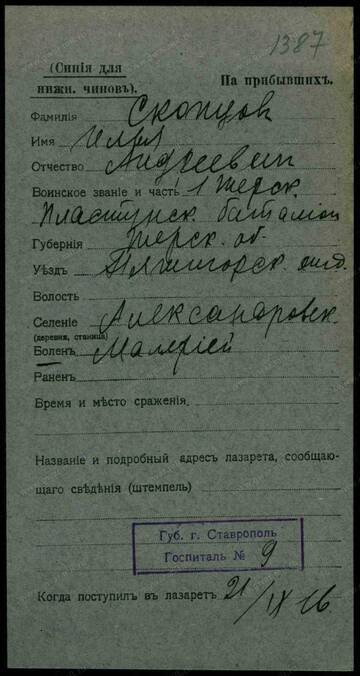 1387
(Синія для
нижн. чиновъ).
На прибывшихъ.
Фамилія Скопцов
Имя Илья
Отчество Андреевич
Воинское званіе и часть 1 Терск.
Пластунск. баталіон
Губернія Терск. об.
Уѣздъ Пятигорск. отд.
Волость
Селеніе Александровск.
(деревня, станица)
Боленъ Малярией
Раненъ
Время и мѣсто сраженія.
Названіе и подробный адресъ лазарета, сообщаю-
щаго свѣдѣнія (штемпель)
Губ. г. Ставрополь
Госпиталь № 9
Когда поступилъ въ лазаретъ 21/IX 16